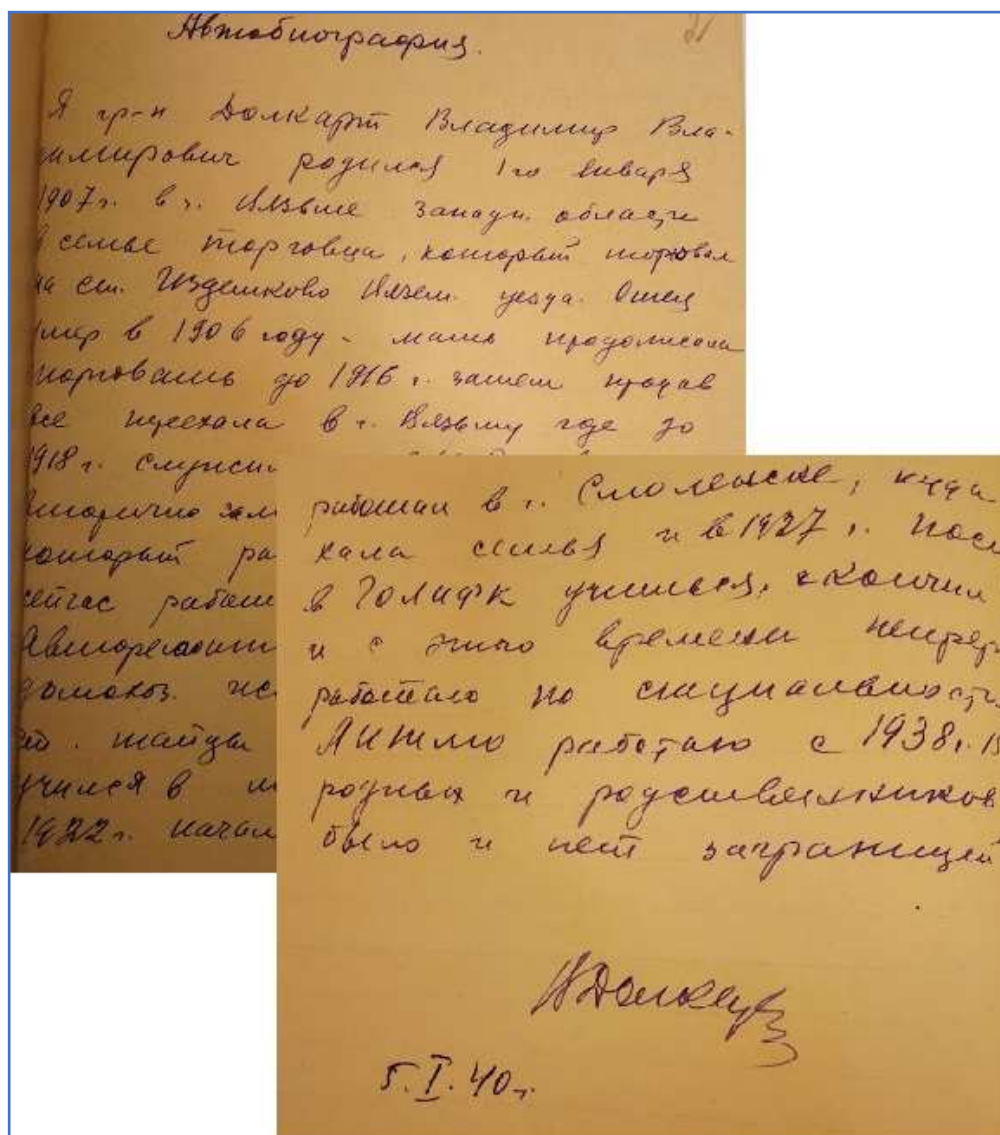 Автобиография.
31
Я гр-н Долкарт Владимир Вла-
имирович родился 1го января
1907г. в г. Вязьме Западн. области
в семье торговца, который торговал
на ст. Издешково Вязем. уезда. Отец
умер в 1906 году - мать продолжала
торговать до 1916 г. затем продав
все переехала в г. Вязьму где до
1918 г. служи
вторично зам
который ра
сейчас работ
Авторемонт
домохоз.
учился в
1922 г. начал
работал в г. Смоленске, куда
хала семья и в 1927 г. пос
в учиться, окончил
и с этого времени непрер
работаю по специальности
работаю с 1938г. В
родных и родственников
было и нет заграницей
ВДолкарт
5.I.40г.